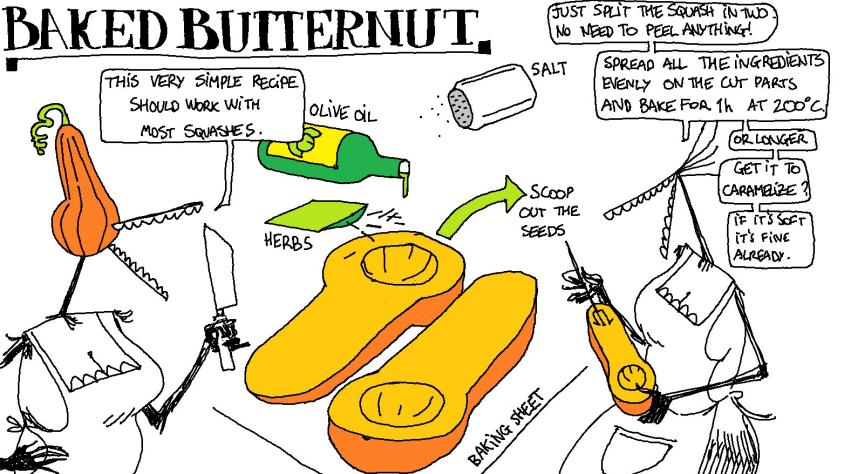 BAKED BUTTERNUT.
THIS VERY SIMPLE RECIPE
SHOULD WORK WITH
MOST SQUASHES.
OLIVE OIL
SALT
HERBS
SCOOP
OUT THE
SEEDS
BAKING SHEET
JUST SPLIT THE SQUASH IN TWO.
NO NEED TO PEEL ANYTHING!
SPREAD ALL THE INGREDIENTS
EVENLY ON THE CUT PARTS
AND BAKE FOR 1h AT 200°C.
OR LONGER
GET IT TO
CARAMELIZE?
IF IT'S SOFT
IT'S FINE
ALREADY.